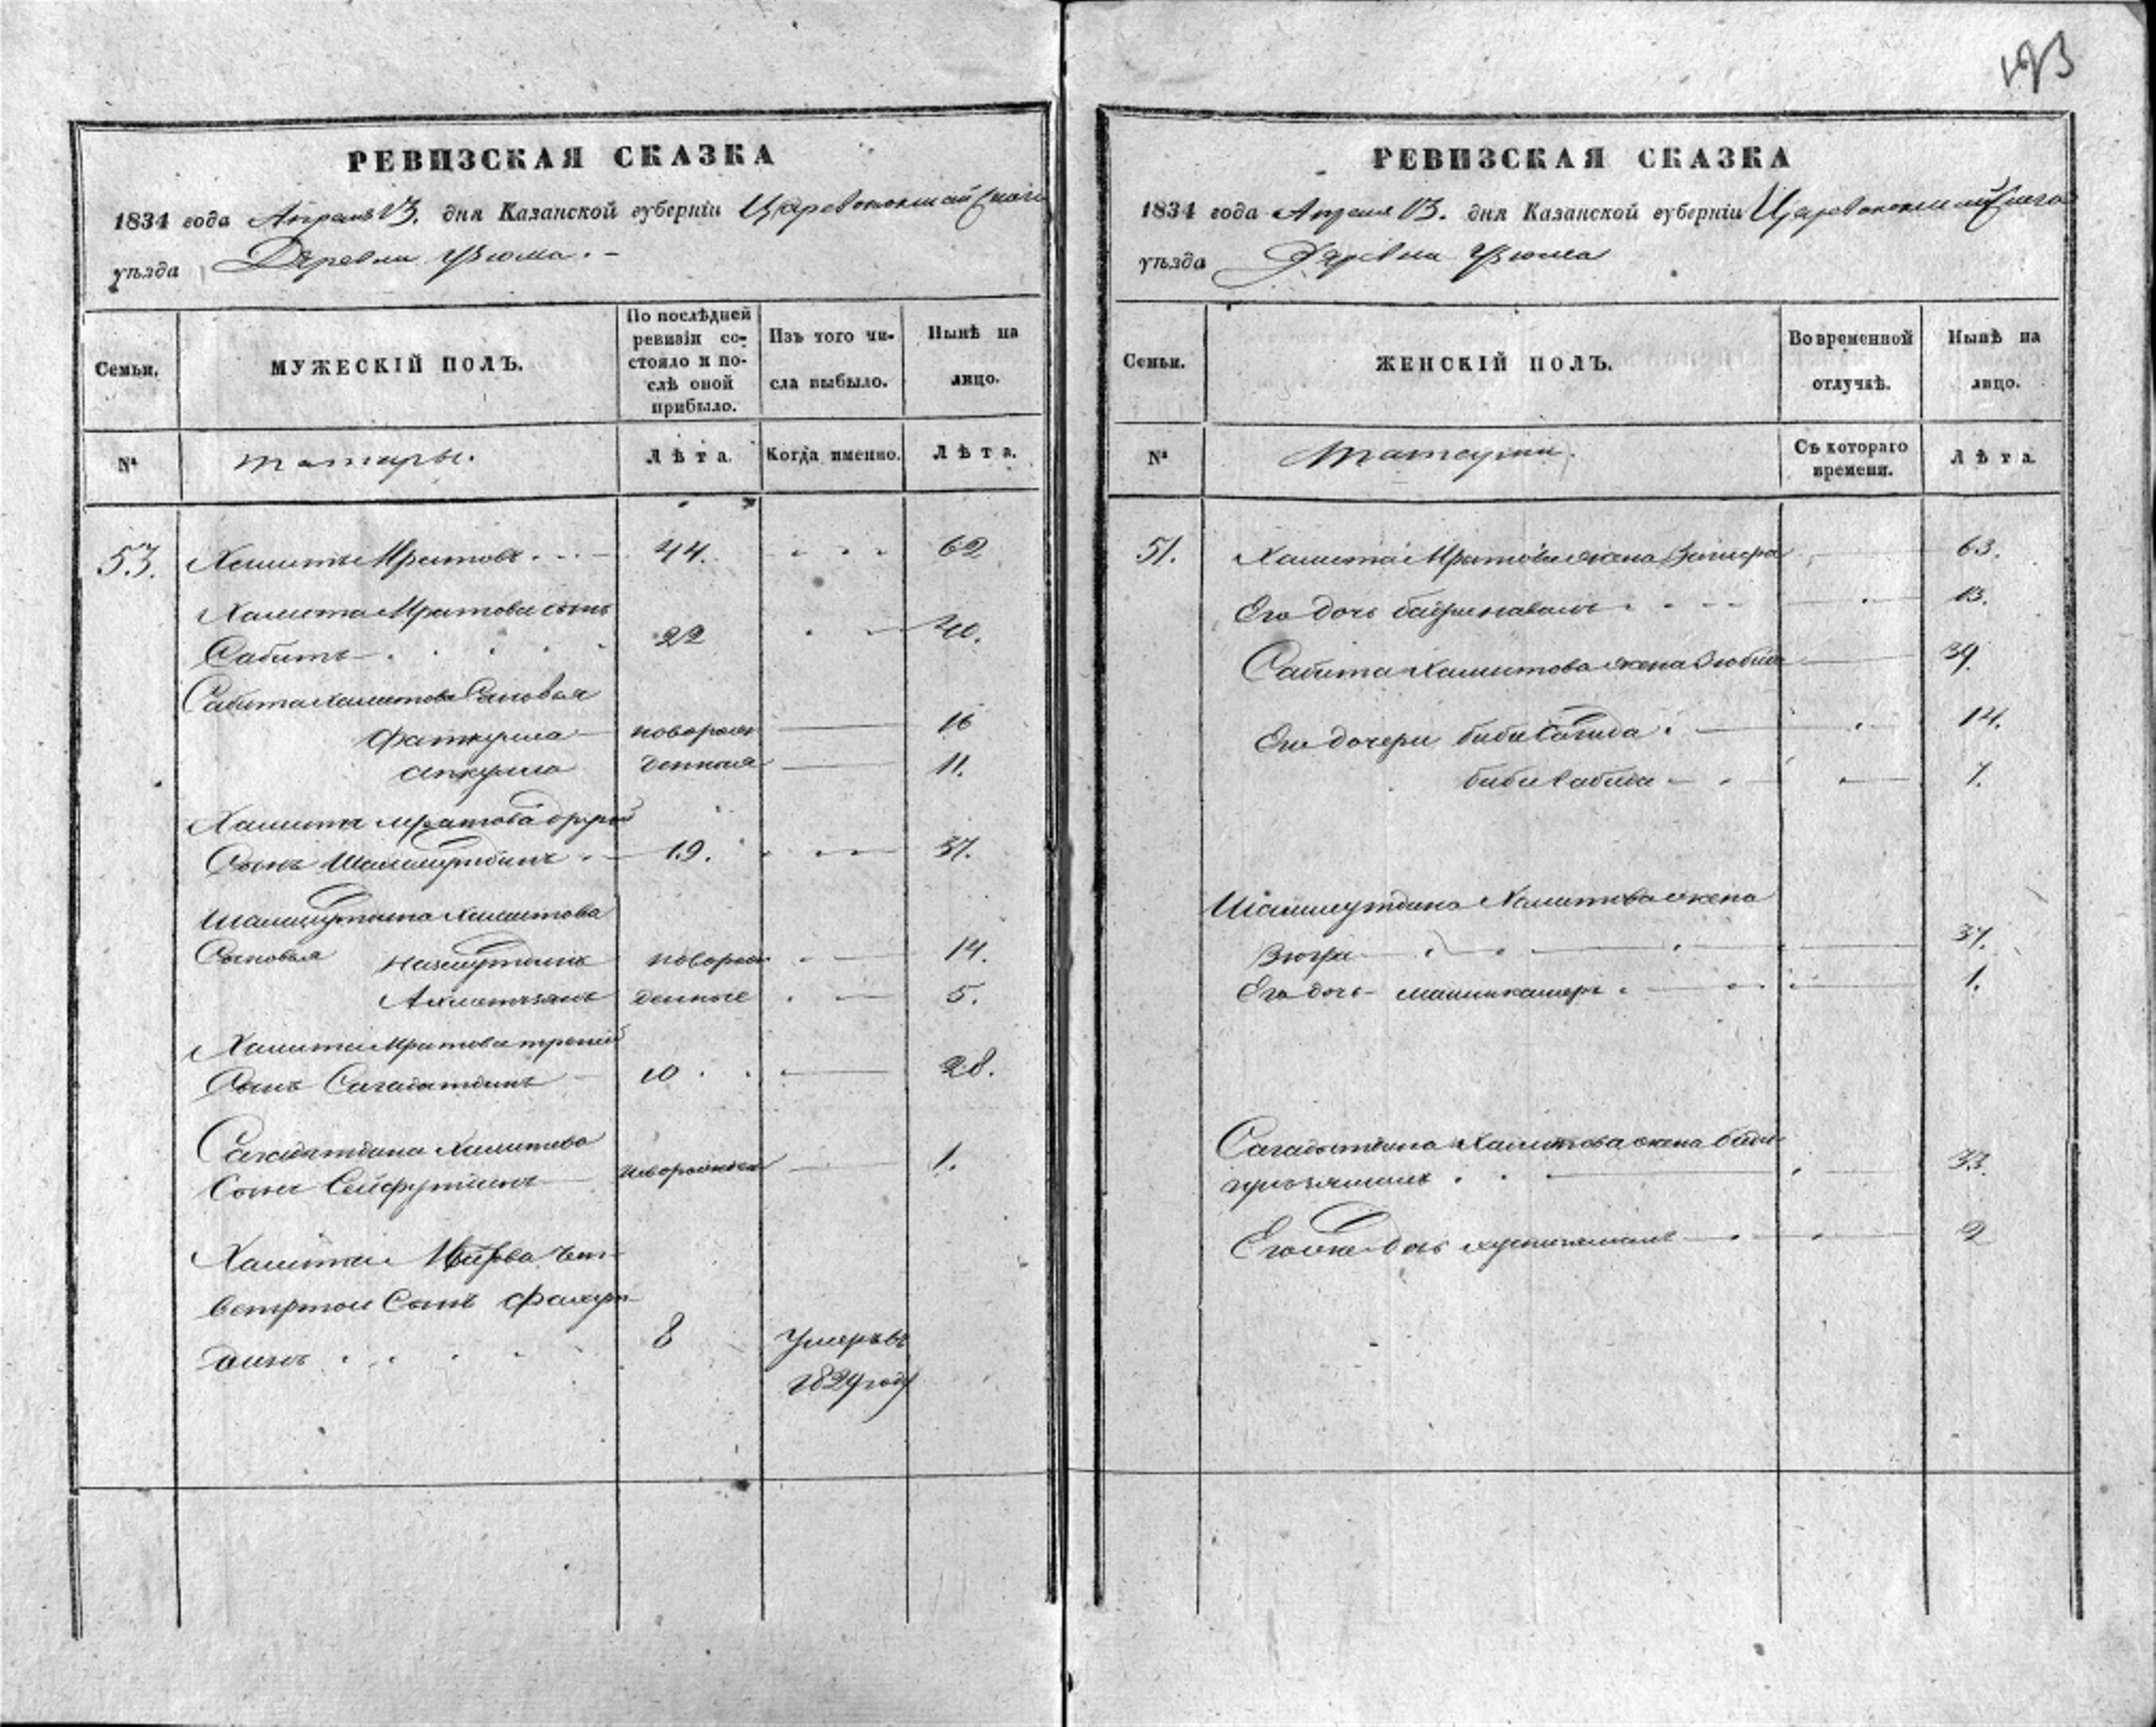 РЕВИЗСКАЯ СКАЗКА
1834 года Апреля 13. дня Казанской губернїи Царевококшайскаго
уѣзда Деревни Уюма.
Семьи.
МУЖЕСКІЙ ПОЛЪ.
По послѣдней ревизїи состояло и послѣ оной прибыло.
Изъ того числа выбыло.
Нынѣ на лицо.
№
татары.
Лѣта.
Когда именно.
Лѣта.
53. Хамитъ Мратовъ 44. 62
Хамита Мратова сынъ
Сабитъ 22 40.
Сабита Хамитова Сыновья
Фаткулла новорож 16
Апкулла денныя 11.
Хамита Мратова другой
Сынъ Шамсутдинъ 19. 37.
Шамсутдина Хамитова
Сыновья Назмутдинъ новорож 14.
Ахметзянъ денные 5.
Хамита Мратова третий
Сынъ Сагадатдинъ 10 28.
Сагадатдина Хамитова
Сынъ Сейфутдинъ 1.
Хамита чет-
вертой Сынъ Фахрут-
динъ 8 Умеръ въ
1829 году
193
РЕВИЗСКАЯ СКАЗКА
1834 года Апреля 13. дня Казанской губернїи Царевококшайскаго
уѣзда Деревни Уюма
Семьи.
ЖЕНСКІЙ ПОЛЪ.
Во временной отлучкѣ.
Нынѣ на лицо.
№
татарки.
Съ котораго времени.
Лѣта.
51. Хамита Мратова жена 63.
Его дочь 13.
Сабита Хамитова жена Зюбида 39.
Его дочери биби Сагида 14.
биби Рабига 7.
Шамсутдина Хамитова жена
Зюгра 37.
Его дочь 1.
Сагадатдина Хамитова жена биби
33.
Его же дочь 2